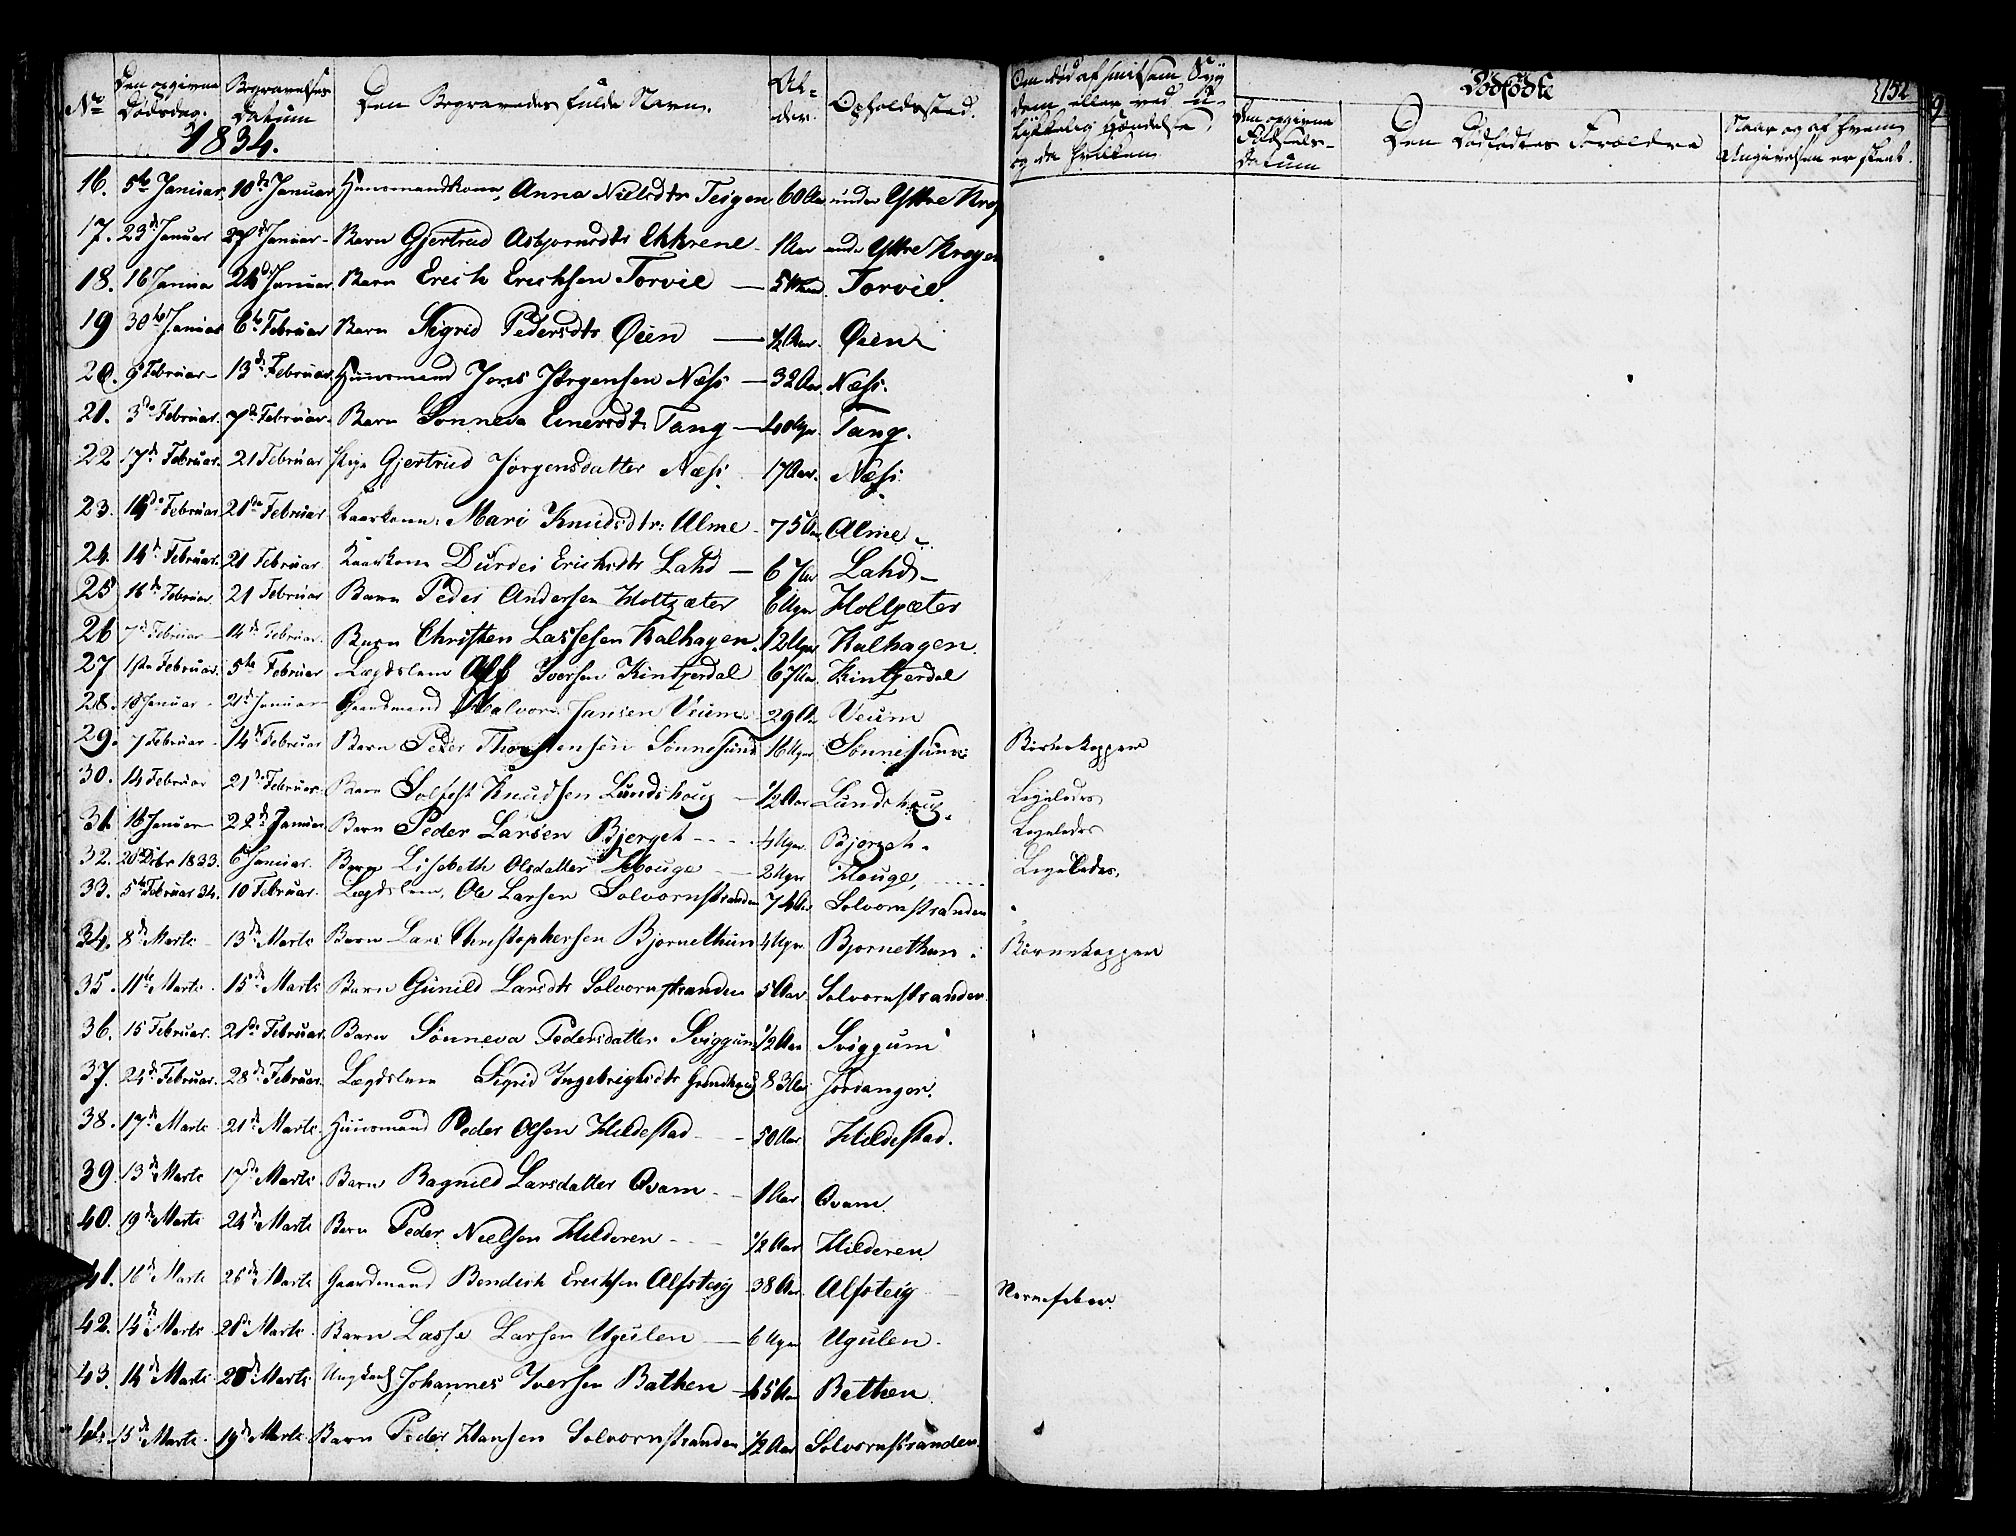 No Den opgivne Dødsdag. Begravelses Datum Den Begravedes fulde Navn. Al- der. Opholdssted. Om død af smitsom Syg dom eller ved U- lykkelig Hændelse, og da hvilken Dødfødte 152
Den opgivne Fødsels- Datum Den Dødfødtes Forældre Naar og af hvem Angivelsen er skeet.
1834.
16. 5te Januar. 10de Januar Huusmandskone, Anna Nielsdtr Teigen 60 Aar under Yttre Krog
17. 23de Januar 27de Januar Barn Gjertrud Asbjørnsdtr Ekkrene 1 Aar under Yttre Krogen
18. 16 Januar 24de Januar Barn Erich Erichsen Torvie 5 Torvie.
19 30te Januar 6te Februar Barn Sigrid Pedersdtr Øien 1/2 Aar. Øien
20. 9 Februar 13de Februar. Huusmand Jons Jørgensen Næss 32 Aar. Næss.
21. 3de Februar. 7de Februar. Barn Sønneva Einersdtr Tang Uger. Tang.
22 17de Februar. 21 Februar Pige Gjertrud Jørgensdatter Næss. 17 Aar. Næss.
23. 14de Februar 21de Februar Kaarkone Mari Knudsdtr: Alme 75 Aar Alme
24. 14de Februar. 21 Februar. Kaarkone Durdei Erichsdtr Lahd 67 Aar Lahd
25 16de Februar. 21 Februar Barn Peder Andersen Holtzæter 6 Uger Holtzæter
26 7de Februar 14de Februar. Barn Christen Lassesen Kalhagen. 12 Uger Kalhagen.
27 1ste Februar. 5te Februar Lægdslem Alf Iversen Kintzerdal 67 Aar. Kintzerdal
28. 18 Januar 21de Januar Gaardmand Halvor Jansen Veum 29 Aar Veum
29. 7 Februar 14de Februar Barn Peder Thorstensen Sønnesund 16 Uger Sønnesund Børnekopper
30. 14 Februar 21de Februar. Barn Solfest Knudsen Lundshoug 1/2 Aar Lundshoug. Ligeledes
31. 16 Januar 22de Januar Barn Peder Larsen Bjerget 4 Uger. Bjerget. Ligeledes
32. 26 Debr 1833. 6 Januar. Barn Lisebeth Olsdatter Houge 2 Uger Houge, Ligeledes.
33. 5te Februar 34. 10 Februar. Lægdslem, Ole Larsen Solvornstranden 74 Aar Solvornstranden
34. 8de Marts 13de Marts Barn Lars Christophersen Bjørnethun 4 Uger Bjørnethun Børnekopper
35. 11te Marts. 15de Marts Barn Gunild Larsdtr Solvornstranden 5 Aar. Solvornstranden.
36. 15 Februar. 21de Februar. Barn Sønneva Pedersdatter Sviggum 1/2 Aar Sviggum
37. 24de Februar. 28de Februar. Lægdslem Sigrid Ingebrigtsdtr 83 Aar Jorianger.
38. 17de Marts 21de Marts. Huusmand Peder Olsen Hildestad 50 Aar Hildestad.
39. 13de Marts 17de Marts Barn Ragnild Larsdatter Qvam 1 Aar Qvam.
40. 19de Marts 24de Marts Barn Peder Nielsen Hilderen 1/2 Aar Hilderen.
41. 16de Marts 26de Marts Gaardmand Bendich Erichsen Alfsteig 38 Aar. Alfsteig Nervefeber.
42. 14de Marts 21de Marts Barn Lasse Larsen Ugulen 6 Uger Ugulen.
43. 14de Marts 20de Marts Ungkarl Johannes Iversen Bathen 45 Aar Bathen
44. 15de Marts 19de Marts Barn Peder Hansen Solvornstranden 1/2 Aar Solvornstranden.